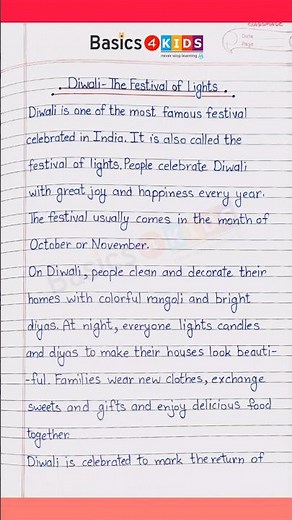 Basics 4 KIDS
never stop learning
Date
Page
Diwali-The Festival of Lights.
Diwali is one of the most famous festival
celebrated in India. It is also called the
festival of lights. People celebrate Diwali
with great joy and happiness every year.
The festival usually comes in the month of
October or November.
On Diwali, people clean and decorate their
homes with colorful rangoli and bright
diyas. At night, everyone lights candles
and diyas to make their houses look beauti-
-ful. Families wear new clothes, exchange
sweets and gifts and enjoy delicious food
together.
Diwali is celebrated to mark the return of